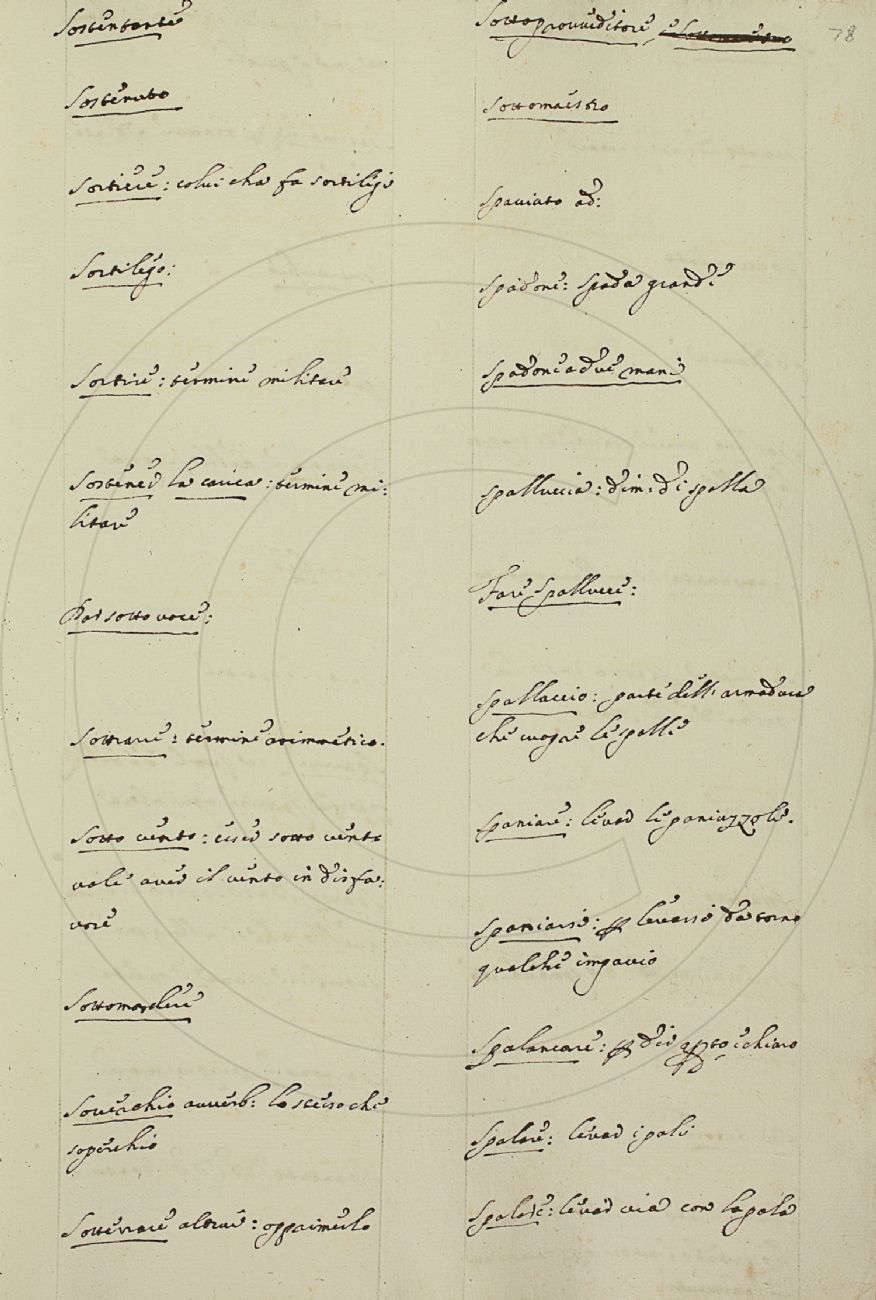 Sostentante
Sostenuto
Sortiere: colui che fa sortilegi
Sortilegio:
Sortire: termine militare
Sostener la carica: termine mi:
litare
Dar sotto voce:
Sottrarre: termine arimmetico.
Sotto vento: esser sotto vento
vale aver il vento in disfa:
vore
Soverchio avverb: lo stesso che
soperchio
Sotterrare altrui: opprimerlo
78
Sottoprovveditore, e
Sottomaestro
Spaviato ad:
Spadone: Spada grande
Spadone a due mani
Spalluccia: dim: di spalla
Fare Spallucce:
Spallaccio: parte dell'armadura
che cuopre le spalle
Spaniare: levar li paniuzzoli.
Spaniarsi: levarsi da torno
qualche impaccio
Spalancare: dir e chiaro
Spalare: levar i pali
Spalare: levar via con la pala